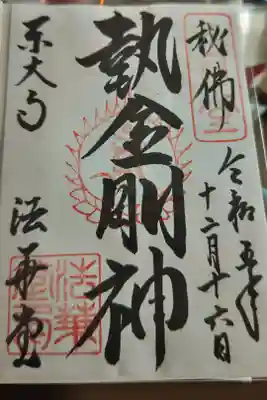 秘佛
令和五年
十二月十六日
執金剛神
東大寺
法華堂
法華